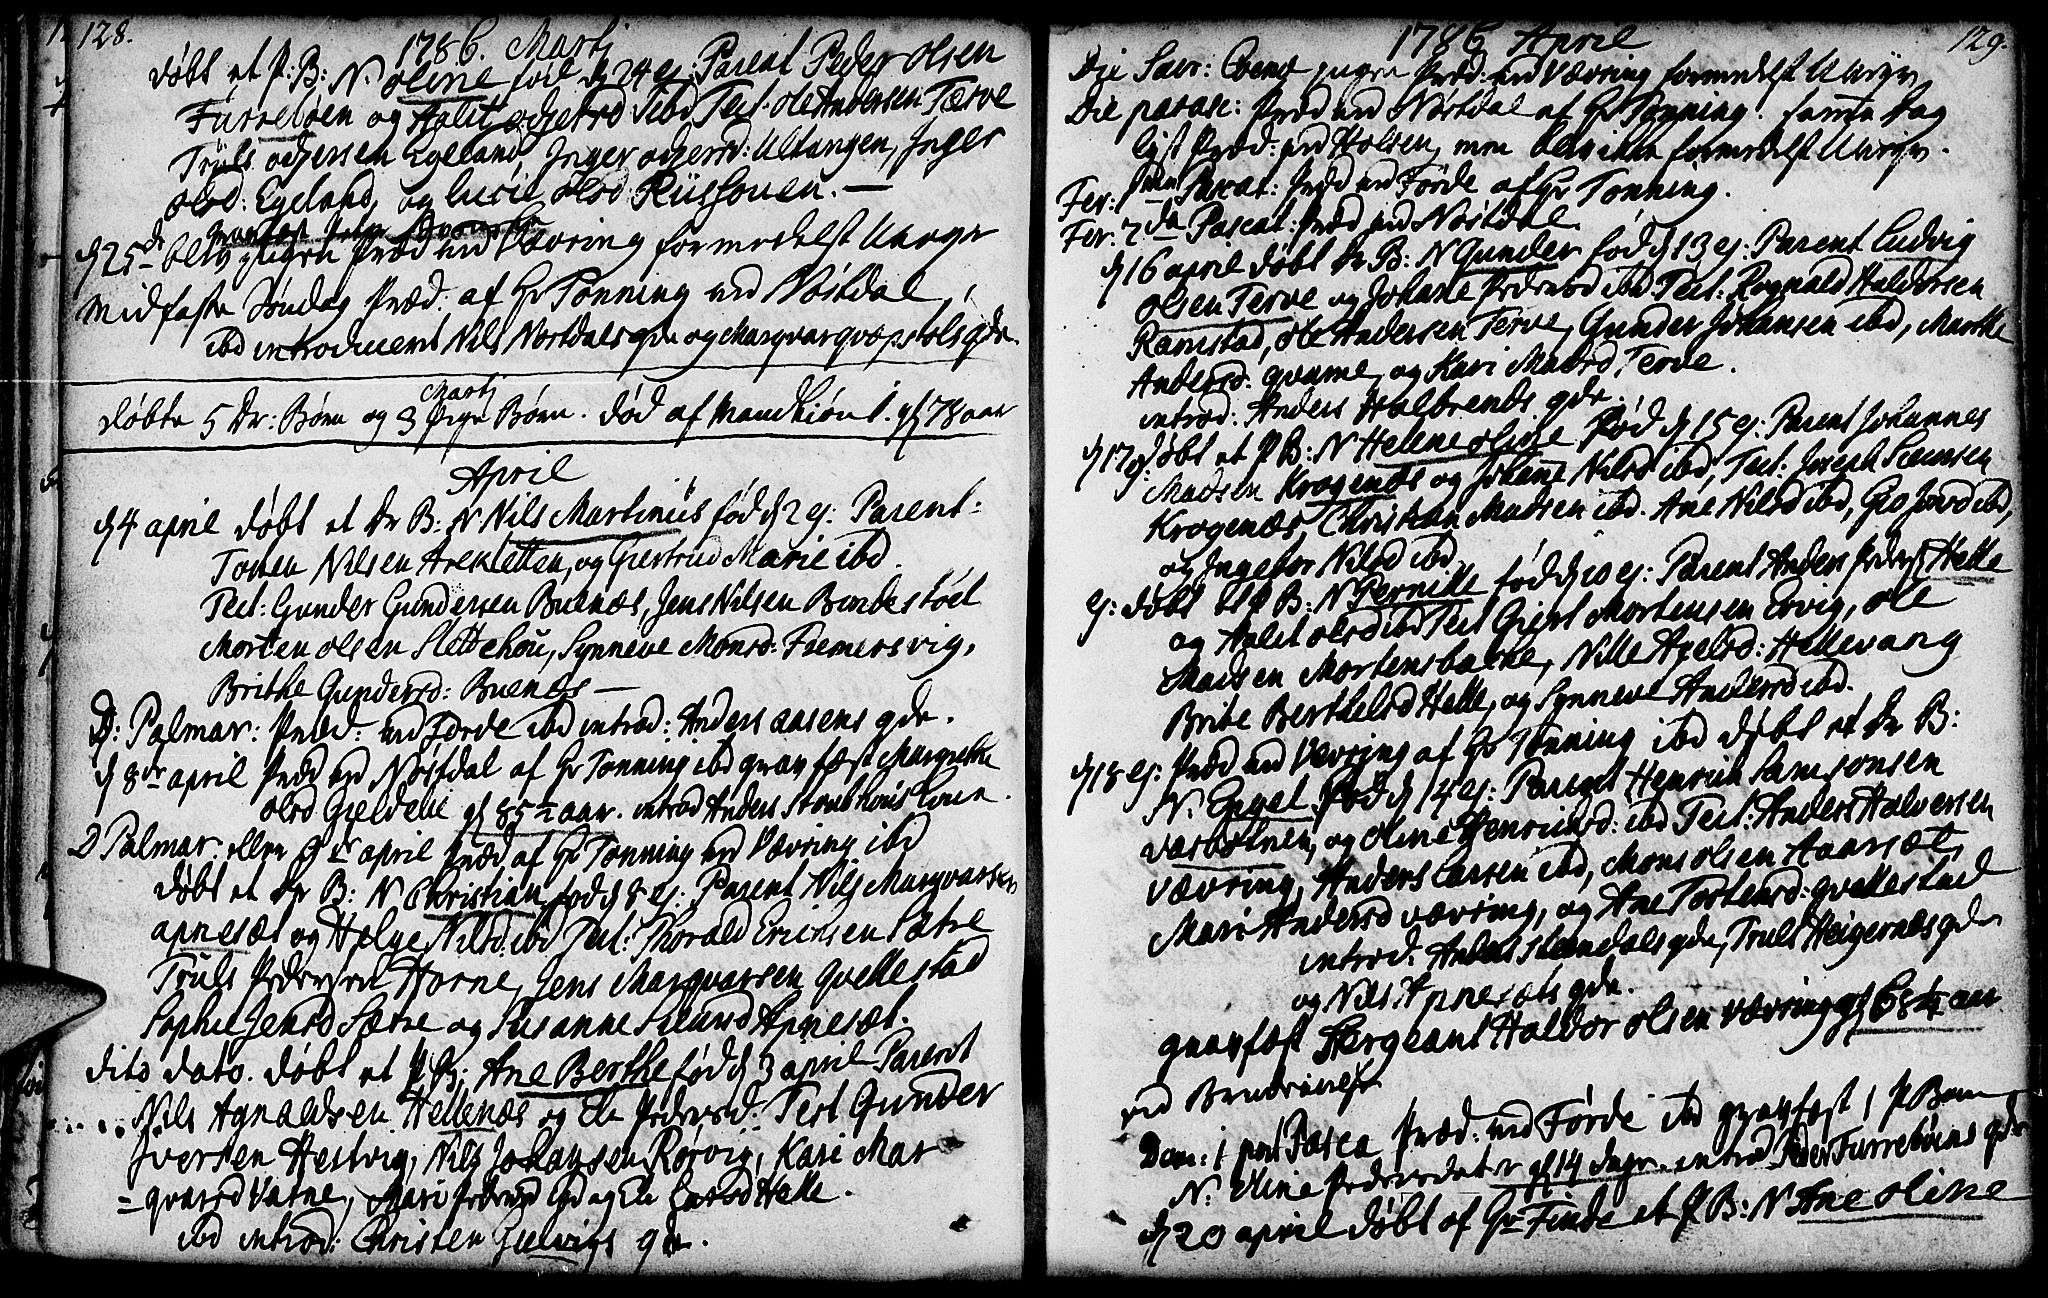 128.
1786. Martj
døbt et P: B: N. Oline fød d 24 ej: Parent Peder Olsen
Furreløen og Aalit ibd Test. Ole Andersen Terve
Truls Egeland, Inger Ultangen, Inger
Olsd: Egeland, og Lucie Olsd
d 25 blev ingen Præd: ved Vævring formedelst Uveyr
Midfaste Søndag Præd: af Hr Tonning ved Nøstdal,
ibd introduceret Nils Nøstdals qde og
Martj
døbte 5 Dr: Børn og 3 Pige Børn. død af Mandkiøn 1. gl 78 aar
April
d 4 april døbt et Dr B: N Nils Martinus fød d 2 ej: Parent:
Tosten Nilsen Arekletten, og Giertrud Marie ibd.
Test: Gunder Gundersen Buenæs, Jens Nilsen Bondestøel
Morten Olsen Slettehou, Synneve Monsd: Femersvig,
Brithe Gundersd: Buenæs —
D: Palmar: Præd: ved Førde ibd introd: Anders Aasens qde.
d 8de april Præd ved Nøstdal af Hr Tonning ibd gravfæst Margrethe
Olsd Gieldelie gl 85½ aar. introd Anders
D Palmar. eller 9de april Præd af Hr Tonning ved Vævring ibd
døbt et Dr B: N Christian fød d 8 ej: Parent Nils Marqvarsen
apnesæt og Helge Nilsd: ibd Test: Thorald Ericksen Sætre
Truls Pedersen Horne, Jens Marqvarsen qvellestad
Sophie Jensd Sætre og Susanne Apnesæt.
dito dato. døbt et P B: Ane Berthe fød d 3 april Parent
Nils Agnaldsen Hellenæs og Eli Pedersd: Test Gunder
Iversen Hestvig, Nils Johansen Rørvig, Kari Mar
= qvarsd Varne, Mari Pedersd ibd og Eli Larsd Helle.
ibd introd: Christen Gielvigs qde.
1786 April
129.
Die ingen Præd: ved Vævring formedelst Uveyr
Die parasc: Præd ved Nøstdal af Hr Tonning. samme dag
lyst Præd: ved Holsen, men blev ikke formedelst Uveyr.
Fer: 1ma Pascat: Præd ved Førde af Hr Tonning.
Fer. 2da Pascat: Præd ved Nøstdal.
d 16 april døbt Dr B: N Gunder fød d 13 ej: Parent Ludvig
Olsen Terve og Johane Pedersd ibd Test: Rognald Haldorsen
Ramstad, Ole Andersen Terve, Gunder Johansen ibd, Marthe
Andersd: qvame, og Kari Madsd Terve.
introd: Anders Halbrends qde.
d 17 døbt et P B: N Helene Olive fød d 15 ej: Parent Johannes
Madsen Krogenæs og Johanne Nilsd ibd, Test: Joseph Samsen
Krogenæs, Christian Madsen ibd. Ane Nilsd ibd, Gro Jonsd ibd,
og Ingebor Nilsd ibd.
ej: døbt et P B: N Pernille fød d 10 ej: Parent Anders Peders Helle
og Aalit Olsd ibd Test Giert Mortensen Ervig, Ole
Madsen Mortensbakke, Nille Axelsd: Hellevang
Brite Berthelsd Helle, og Synneve Andersd ibd.
d 18 ej: Præd ved Vævring af Hr Tonning ibd døbt et Dr B:
N. Engel fød d 14 ej: Parent Henrich Samsonsen
Værbotnen, og Oline Henrichsd: ibd Test: Anders Halversen
Vævring, Anders Larsen ibd, Mons Olsen Aarsæt,
Mari Andersd Vævring, og Ane Tostensd: qvellestad
introd: Anders qde, Truls Heigernæs qde
og Nils Apnesæts qde.
gravfæst Sergeant Haldor Olsen Vævring gl 68¼ aar
ved
Dom: 1 post Pasca Præd: ved Førde ibd gravfæst 1 P Barn
N: Oline Pedersdatter gl 14 dage. introd Peder Furreløens qde
d 20 april døbt af Hr Finde et P B: N Ane Oline